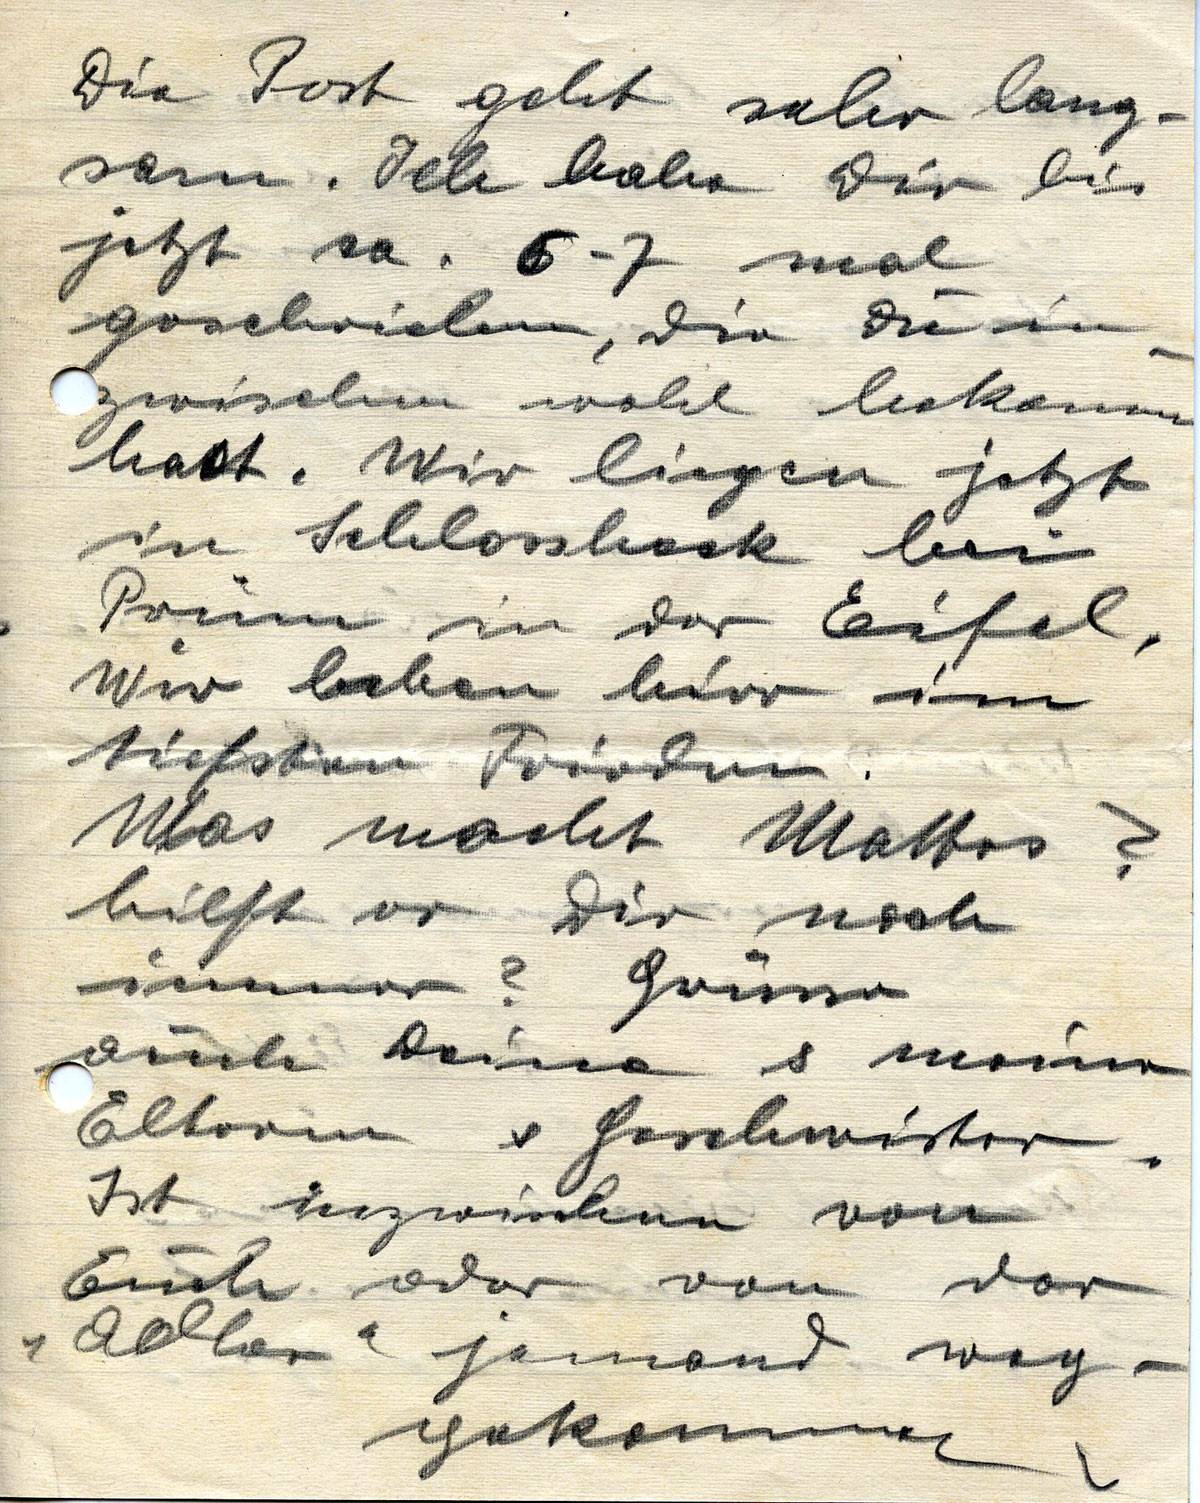 Die Post geht sehr lang-
sam. Ich habe Dir bis
jetzt ca. 6-7 mal
geschrieben, die Du in-
zwischen wohl bekomm
hast. Wir liegen jetzt
in Schlossheck bei
Prüm in der Eifel.
Wir leben hier im
tiefsten Frieden.
Was macht Mattes?
hilft er Dir noch
immer? Grüsse
auch Deine & meine
Eltern & Geschwister.
Ist inzwischen von
Euch oder von der
„Adler“ jemand weg-
gekommen